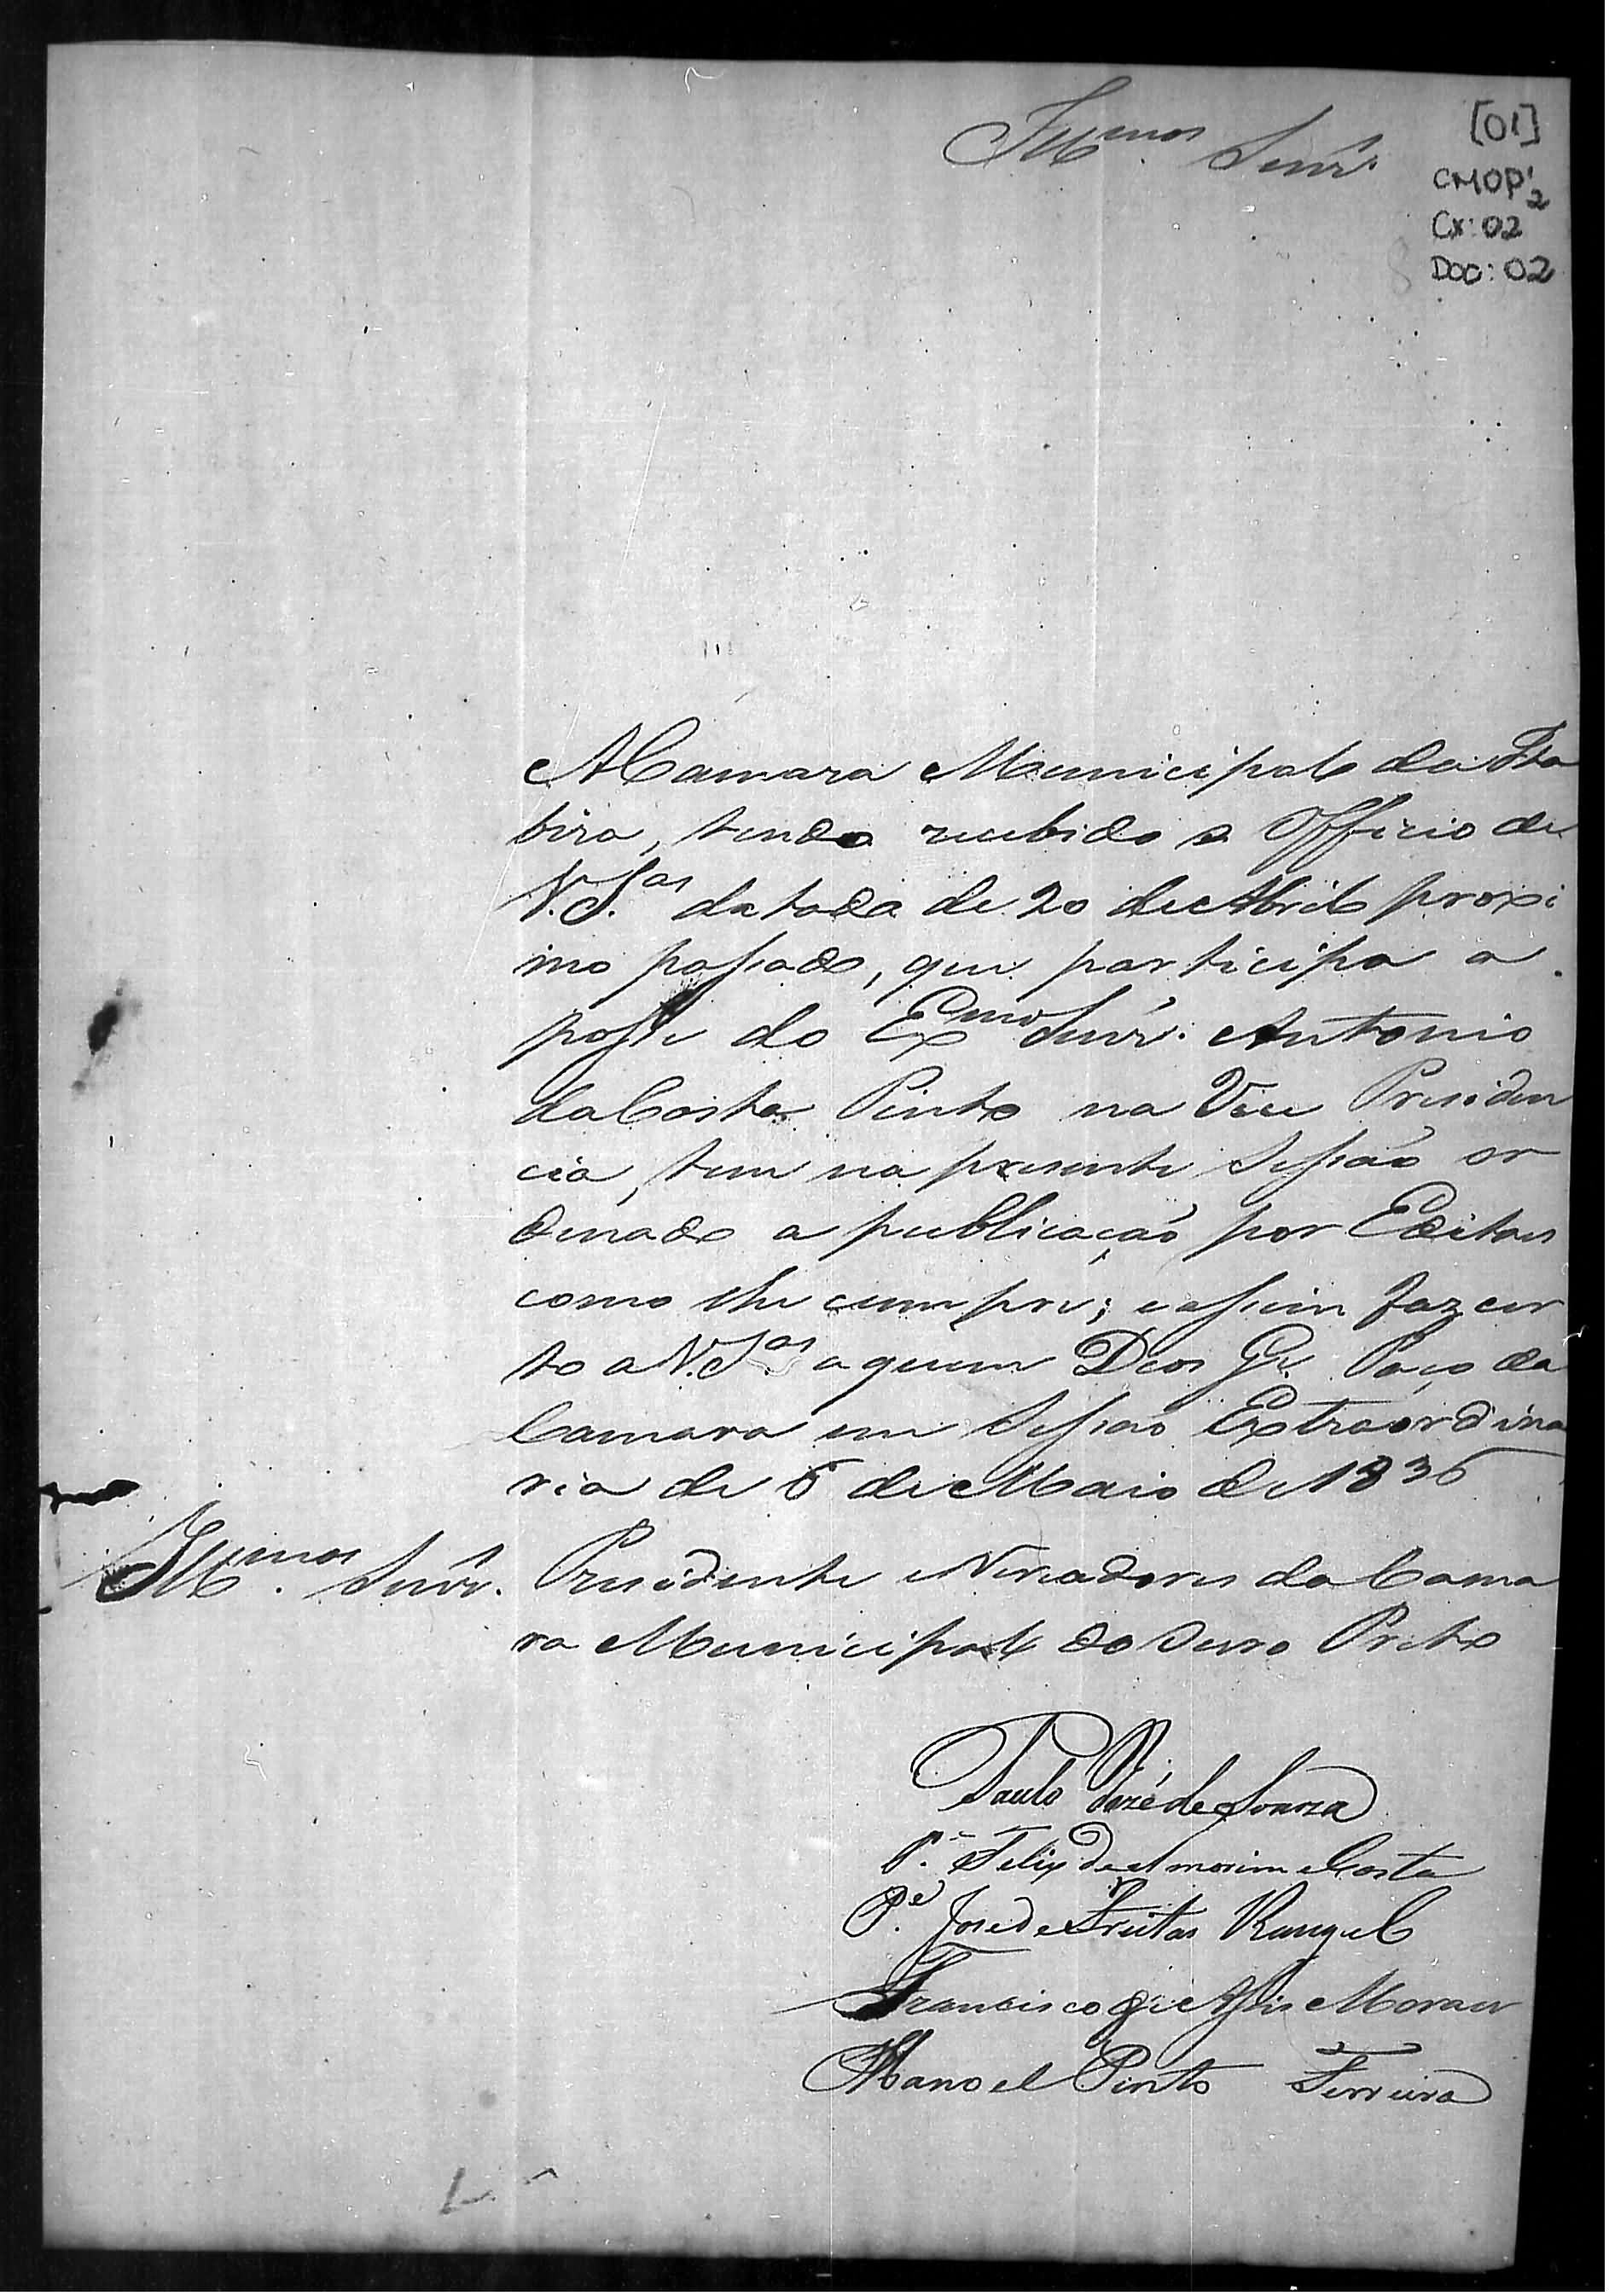 Illmos Senrs.
[01]
CMOP 1/2
Cx: 02
DOC: 02
A Camara Municipal da Ita
bira, tendo recebido o Officio de
V.S.as datado de 20 de Abril proxi
mo passado, que participa a
posse do Exmo Senr. Antonio
da Costa Pinto na Vice Presiden
cia, tem na presente Sessão or
denado a publicação por Editaes
como lhe cumpre; e assim faz cer
to a V.S.as a quem Deos Ge. Paço da
Camara em Sessão Extraordina
ria de 6 de Maio de 1836
Illmos Senrs. Presidente e Vereadores da Cama
ra Municipal do Ouro Preto
Paulo José de Souza
Pe. Felix de Amorim Costa
Pe. José de Freitas Rangel
Francisco de Assis Moraes
Manoel Pinto Ferreira